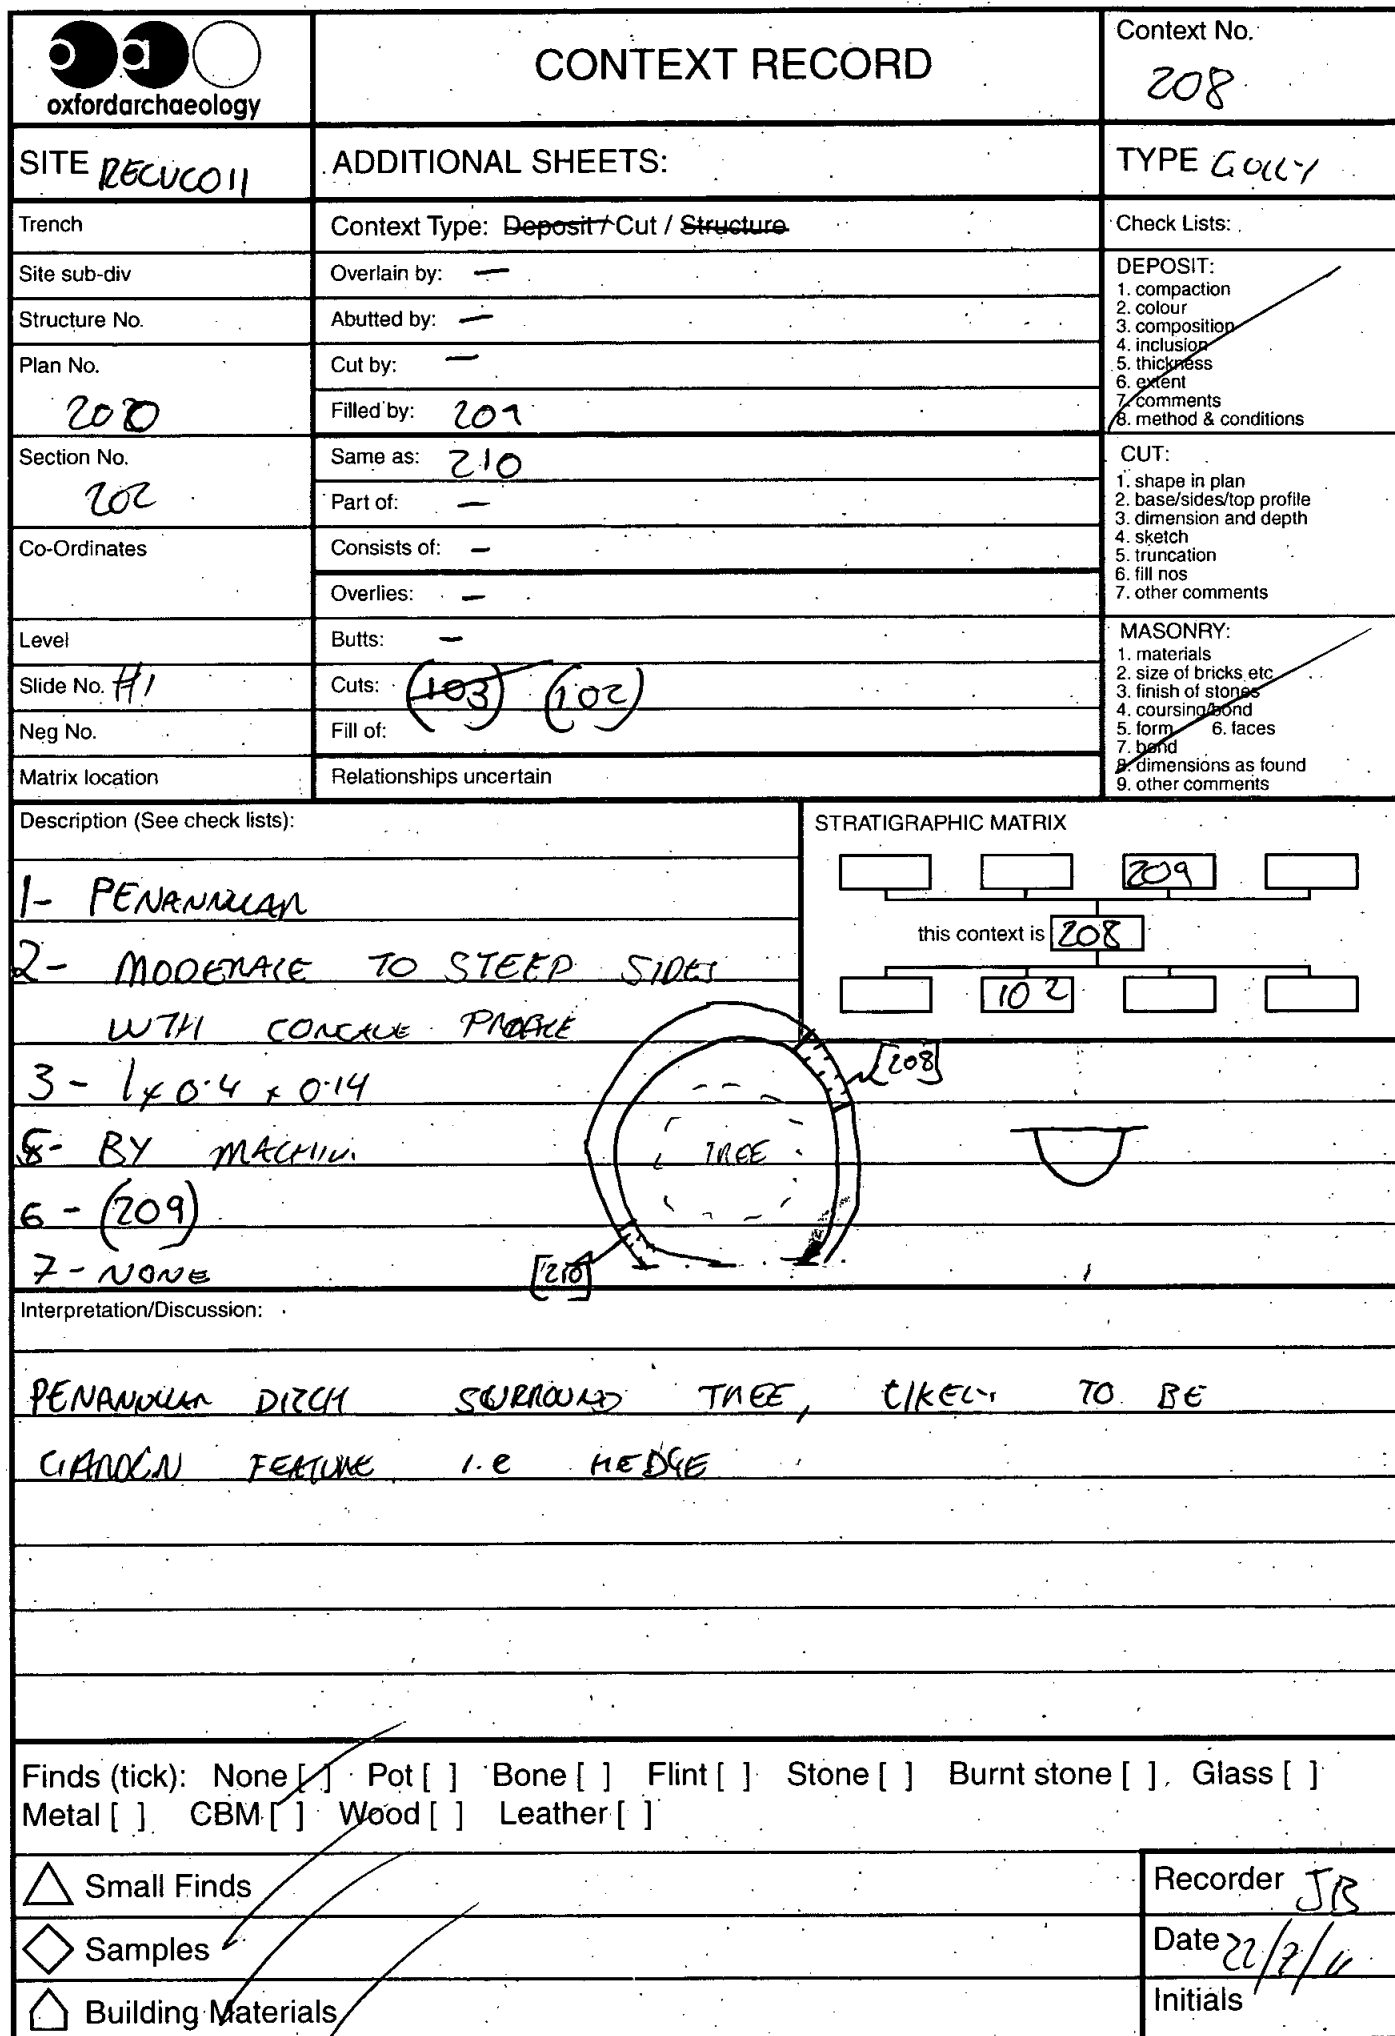 oxfordarchaeology
CONTEXT RECORD
Context No.
208
SITE RECUCO11
ADDITIONAL SHEETS:
TYPE GULLY
Trench
Context Type: Deposit / Cut / Structure
Check Lists:
Site sub-div
Overlain by: —
Structure No.
Abutted by: —
Plan No.
Cut by: —
Filled by: 209
Section No.
202
Same as: 210
Part of: —
Co-Ordinates
Consists of: —
Overlies: —
Level
Butts: —
Slide No. #1
Cuts: (103) (102)
Neg No.
Fill of:
Matrix location
Relationships uncertain
DEPOSIT:
1. compaction
2. colour
3. composition
4. inclusion
5. thickness
6. extent
7. comments
8. method & conditions
CUT:
1. shape in plan
2. base/sides/top profile
3. dimension and depth
4. sketch
5. truncation
6. fill nos
7. other comments
MASONRY:
1. materials
2. size of bricks etc
3. finish of stones
4. coursing/bond
5. form 6. faces
7. bond
8. dimensions as found
9. other comments
Description (See check lists):
1- PENANNULAR
2- MODERATE TO STEEP SIDES
WITH CONCAVE PROFILE
3 - 1 x 0.4 x 0.14
5- BY MACHINE
6 - (209)
7 - NONE
STRATIGRAPHIC MATRIX
209
this context is 208
102
[208]
TREE
[210]
Interpretation/Discussion:
PENANULAR DITCH SURROUND TREE, LIKELY TO BE
GARDEN FEATURE i.e HEDGE
Finds (tick): None [ ] Pot [ ] Bone [ ] Flint [ ] Stone [ ] Burnt stone [ ] Glass [ ]
Metal [ ] CBM [ ] Wood [ ] Leather [ ]
Small Finds
Samples
Building Materials
Recorder JB
Date 22/7/11
Initials